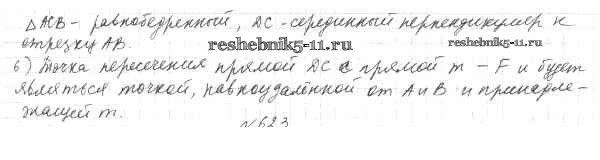 △ACB - равнобедренный, DC - серединный перпендикуляр к
отрезку AB.
reshebnik5-11.ru reshebnik5-11.ru
б) Точка пересечения прямой DC с прямой m - F и будет
являться точкой, равноудалённой от A и B и принадле-
жащей m.
№623